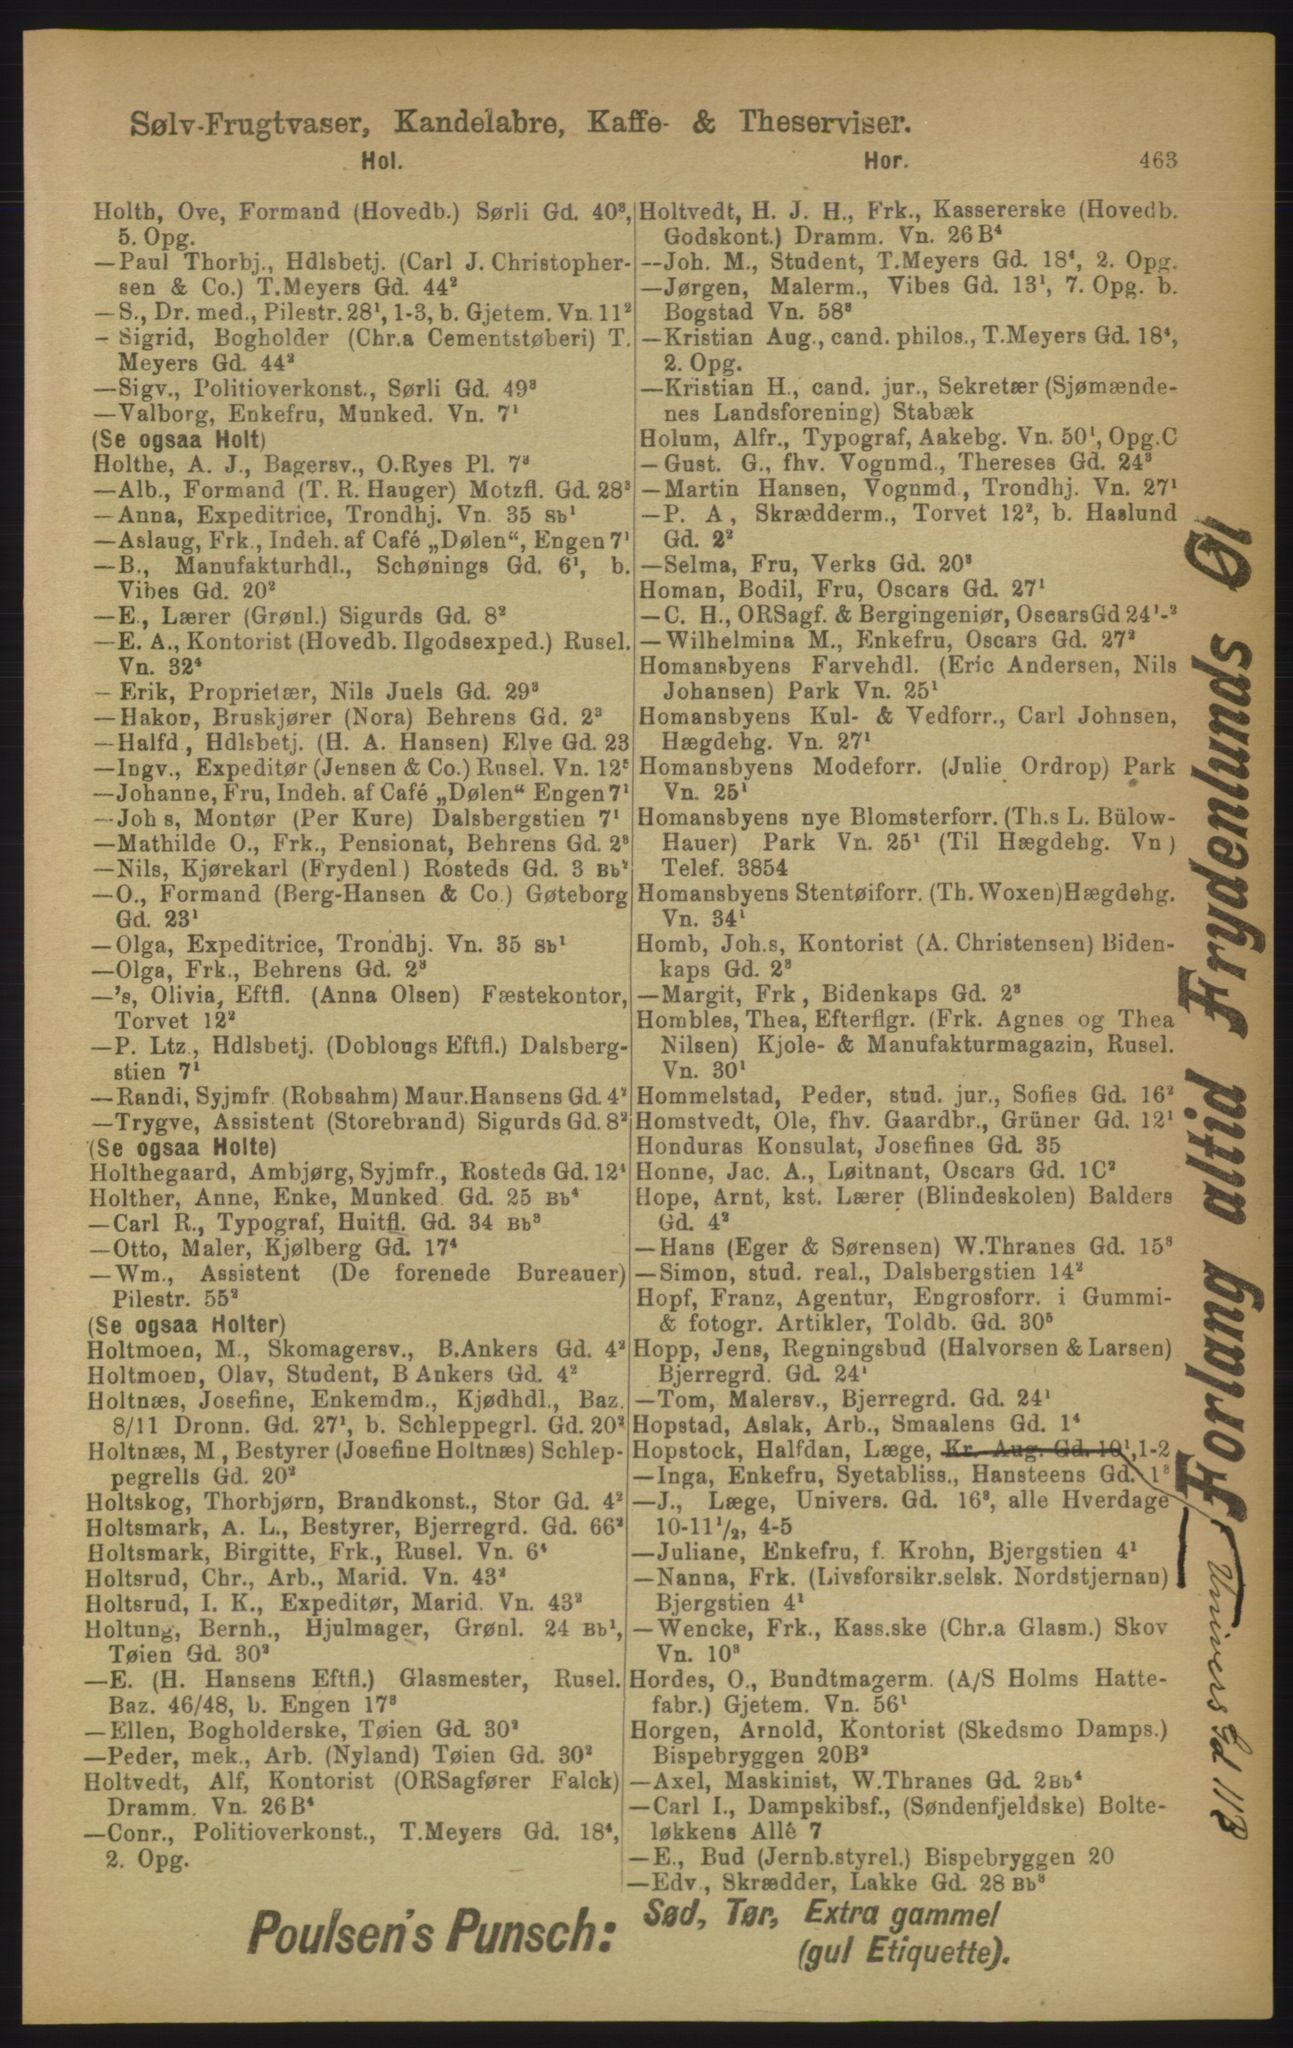 Sølv-Frugtvaser, Kandelabre, Kaffe- & Theserviser.
Hol.
Hor.
463
Holth, Ove, Formand (Hovedb.) Sørli Gd. 40³,
5. Opg.
—Paul Thorbj., Hdlsbetj. (Carl J. Christopher-
sen & Co.) T.Meyers Gd. 44²
—S., Dr. med., Pilestr. 28¹, 1-3, b. Gjetem. Vn. 11²
- Sigrid, Bogholder (Chr.a Cementstøberi) T.
Meyers Gd. 44²
—Sigv., Politioverkonst., Sørli Gd. 49³
—Valborg, Enkefru, Munked. Vn. 7¹
(Se ogsaa Holt)
Holthe, A. J., Bagersv., O.Ryes Pl. 7³
—Alb., Formand (T. R. Hauger) Motzfl. Gd. 28³
—Anna, Expeditrice, Trondhj. Vn. 35 Sb¹
—Aslaug, Frk., Indeh. af Café „Dølen“, Engen 7¹
—B., Manufakturhdl., Schønings Gd. 6¹, b.
Vibes Gd. 20²
—E., Lærer (Grønl.) Sigurds Gd. 8²
—E. A., Kontorist (Hovedb. Ilgodsexped.) Rusel.
Vn. 32⁴
- Erik, Proprietær, Nils Juels Gd. 29³
—Hakon, Bruskjører (Nora) Behrens Gd. 2³
—Halfd , Hdlsbetj. (H. A. Hansen) Elve Gd. 23
—Ingv., Expeditør (Jensen & Co.) Rusel. Vn. 12⁵
—Johanne, Fru, Indeh. af Café „Dølen“ Engen 7¹
—Joh s, Montør (Per Kure) Dalsbergstien 7¹
—Mathilde O., Frk., Pensionat, Behrens Gd. 2³
—Nils, Kjørekarl (Frydenl ) Rosteds Gd. 3 Bb²
—O., Formand (Berg-Hansen & Co.) Gøteborg
Gd. 23¹
—Olga, Expeditrice, Trondhj. Vn. 35 Sb¹
—Olga, Frk., Behrens Gd. 2³
—’s, Olivia, Eftfl. (Anna Olsen) Fæstekontor,
Torvet 12²
—P. Ltz., Hdlsbetj. (Doblougs Eftfl.) Dalsberg-
stien 7¹
—Randi, Syjmfr (Robsahm) Maur.Hansens Gd. 4²
—Trygve, Assistent (Storebrand) Sigurds Gd. 8²
(Se ogsaa Holte)
Holthegaard, Ambjørg, Syjmfr., Rosteds Gd. 12⁴
Holther, Anne, Enke, Munked Gd. 25 Bb⁴
—Carl R., Typograf, Huitfl. Gd. 34 Bb³
—Otto, Maler, Kjølberg Gd. 17⁴
—Wm., Assistent (De forenede Bureauer)
Pilestr. 55²
(Se ogsaa Holter)
Holtmoen, M., Skomagersv., B.Ankers Gd. 4²
Holtmoen, Olav, Student, B Ankers Gd. 4²
Holtnæs, Josefine, Enkemdm., Kjødhdl., Baz.
8/11 Dronn. Gd. 27¹, b. Schleppegrl. Gd. 20²
Holtnæs, M , Bestyrer (Josefine Holtnæs) Schlep-
pegrells Gd. 20²
Holtskog, Thorbjørn, Brandkonst., Stor Gd. 4²
Holtsmark, A. L., Bestyrer, Bjerregrd. Gd. 66²
Holtsmark, Birgitte, Frk., Rusel. Vn. 6⁴
Holtsrud, Chr., Arb., Marid. Vn. 43²
Holtsrud, I. K., Expeditør, Marid. Vn. 43²
Holtung, Bernh., Hjulmager, Grønl. 24 Bb¹,
Tøien Gd. 30²
—E. (H. Hansens Eftfl.) Glasmester, Rusel.
Baz. 46/48, b. Engen 17³
—Ellen, Bogholderske, Tøien Gd. 30²
—Peder, mek., Arb. (Nyland) Tøien Gd. 30²
Holtvedt, Alf, Kontorist (ORSagfører Falck)
Dramm. Vn. 26B⁴
—Conr., Politioverkonst., T.Meyers Gd. 18⁴,
2. Opg.
Holtvedt, H. J. H., Frk., Kassererske (Hovedb.
Godskont.) Dramm. Vn. 26B⁴
--Joh. M., Student, T.Meyers Gd. 18⁴, 2. Opg.
—Jørgen, Malerm., Vibes Gd. 13¹, 7. Opg. b.
Bogstad Vn. 58³
—Kristian Aug., cand. philos., T.Meyers Gd. 18⁴,
2. Opg.
—Kristian H., cand. jur., Sekretær (Sjømænde-
nes Landsforening) Stabæk
Holum, Alfr., Typograf, Aakebg. Vn. 50¹, Opg.C
—Gust. G., fhv. Vognmd., Thereses Gd. 24³
—Martin Hansen, Vognmd., Trondhj. Vn. 27¹
—P. A , Skrædderm., Torvet 12², b. Haslund
Gd. 2²
—Selma, Fru, Verks Gd. 20³
Homan, Bodil, Fru, Oscars Gd. 27¹
—C. H., ORSagf. & Bergingeniør, OscarsGd 24¹-²
—Wilhelmina M., Enkefru, Oscars Gd. 27²
Homansbyens Farvehdl. (Eric Andersen, Nils
Johansen) Park Vn. 25¹
Homansbyens Kul- & Vedforr., Carl Johnsen,
Hægdehg. Vn. 27¹
Homansbyens Modeforr. (Julie Ordrop) Park
Vn. 25¹
Homansbyens nye Blomsterforr. (Th.s L. Bülow-
Hauer) Park Vn. 25¹ (Til Hægdehg. Vn )
Telef. 3854
Homansbyens Stentøiforr. (Th. Woxen)Hægdehg.
Vn. 34¹
Homb, Joh.s, Kontorist (A. Christensen) Biden-
kaps Gd. 2³
—Margit, Frk , Bidenkaps Gd. 2³
Hombles, Thea, Efterflgr. (Frk. Agnes og Thea
Nilsen) Kjole- & Manufakturmagazin, Rusel.
Vn. 30¹
Hommelstad, Peder, stud. jur., Sofies Gd. 16²
Homstvedt, Ole, fhv. Gaardbr., Grüner Gd. 12¹
Honduras Konsulat, Josefines Gd. 35
Honne, Jac. A., Løitnant, Oscars Gd. 1C²
Hope, Arnt, kst. Lærer (Blindeskolen) Balders
Gd. 4²
—Hans (Eger & Sørensen) W.Thranes Gd. 15³
—Simon, stud. real., Dalsbergstien 14²
Hopf, Franz, Agentur, Engrosforr. i Gummi-
& fotogr. Artikler, Toldb. Gd. 30⁵
Hopp, Jens, Regningsbud (Halvorsen & Larsen)
Bjerregrd. Gd. 24¹
—Tom, Malersv., Bjerregrd. Gd. 24¹
Hopstad, Aslak, Arb., Smaalens Gd. 1⁴
Hopstock, Halfdan, Læge, Kr. Aug. Gd. 10¹, 1-2
—Inga, Enkefru, Syetabliss., Hansteens Gd. 1³
—J., Læge, Univers. Gd. 16³, alle Hverdage
10-11½, 4-5
—Juliane, Enkefru, f. Krohn, Bjergstien 4¹
—Nanna, Frk. (Livsforsikr.selsk. Nordstjernan)
Bjergstien 4¹
—Wencke, Frk., Kass.ske (Chr.a Glasm.) Skov
Vn. 10³
Hordes, O., Bundtmagerm. (A/S Holms Hatte-
fabr.) Gjetem. Vn. 56¹
Horgen, Arnold, Kontorist (Skedsmo Damps.)
Bispebryggen 20B²
—Axel, Maskinist, W.Thranes Gd. 2Bb⁴
—Carl I., Dampskibsf., (Søndenfjeldske) Bolte-
løkkens Allé 7
—E., Bud (Jernb.styrel.) Bispebryggen 20
—Edv., Skrædder, Lakke Gd. 28 Bb³
Forlang altid Frydenlunds Øl
Univers Gd 11B
Poulsen's Punsch:
Sød, Tør, Extra gammel
(gul Etiquette).